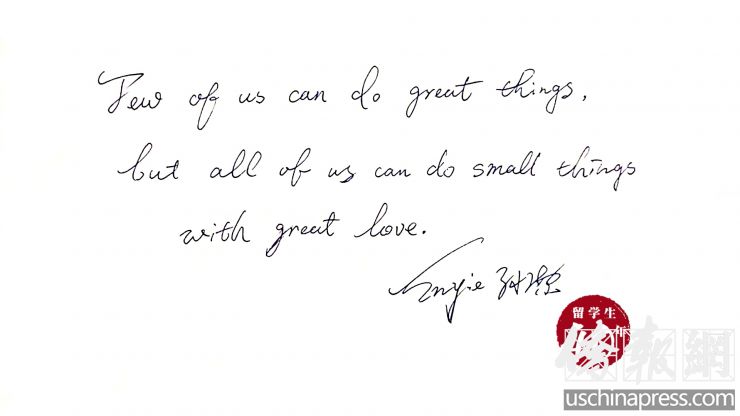 Few of us can do great things,
but all of us can do small things
with great love.
留学生
侨報網
uschinapress.com